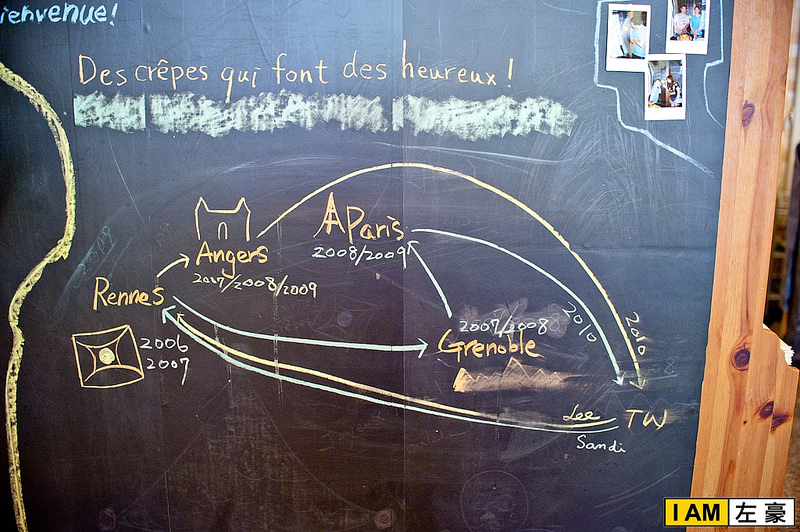 ienvenue!
Des crêpes qui font des heureux !
Angers
2007/2008/2009
Paris
2008/2009
Rennes
2006
2007
2007/2008
Grenoble
2010
2010
Lee
TW
Sandi
I AM 左豪